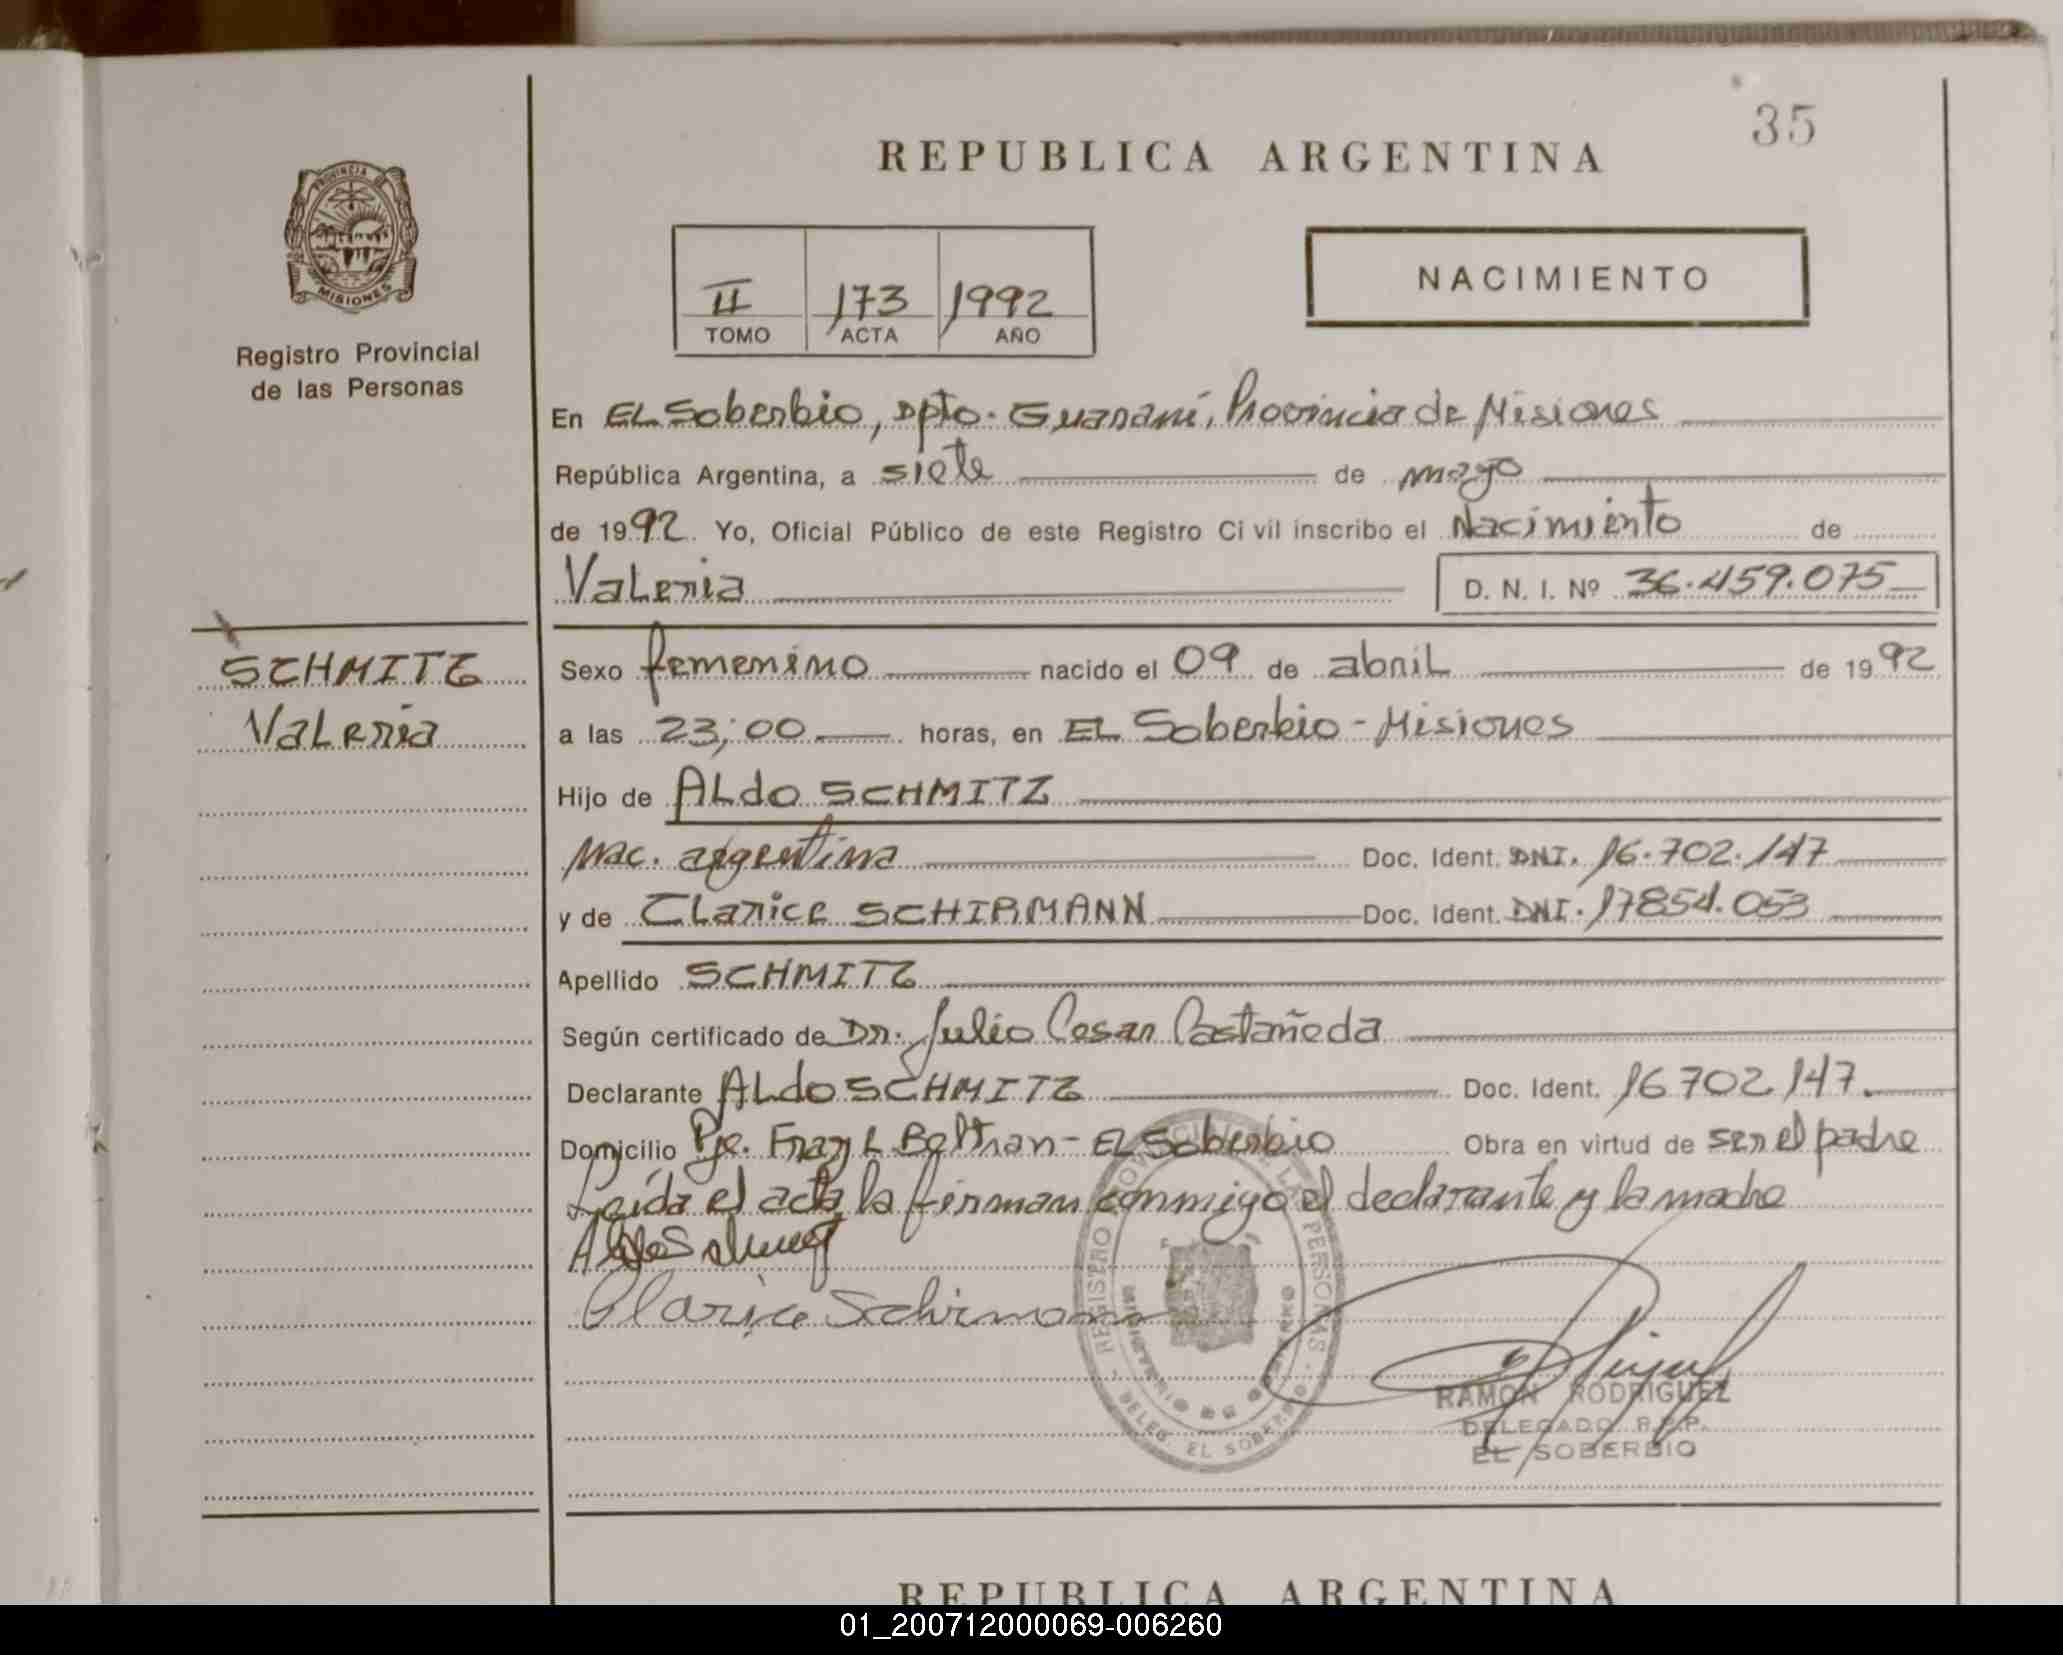 35
REPUBLICA ARGENTINA
PROVINCIA DE
MISIONES
Registro Provincial
de las Personas
II 173 1992
TOMO ACTA AÑO
NACIMIENTO
En EL Soberbio, Dpto. Guaraní, Provincia de Misiones
República Argentina, a siete de mayo
de 1992. Yo, Oficial Público de este Registro Civil inscribo el Nacimiento de
Valeria D. N. I. Nº 36.459.075
SCHMITZ
Valeria
Sexo femenino nacido el 09 de abril de 1992
a las 23;00 horas, en EL Soberbio - Misiones
Hijo de ALdo SCHMITZ
Nac. argentina Doc. Ident. DNI. 16.702.147
y de Clarice SCHIRMANN Doc. Ident. DNI. 17854.053
Apellido SCHMITZ
Según certificado de Dr. Julio Cesar Castañeda
Declarante ALdo SCHMITZ Doc. Ident. 16702147.
Domicilio Pje. Fray L Beltran - EL Soberbio Obra en virtud de ser el padre
Leída el acta la firman conmigo el declarante y la madre
Clarice Schirmann
REGISTRO PROVINCIAL DE LAS PERSONAS
DELEG. EL SOBERBIO
RAMON RODRIGUEZ
DELEGADO R.P.P.
EL SOBERBIO
REPUBLICA ARGENTINA
01_200712000069-006260